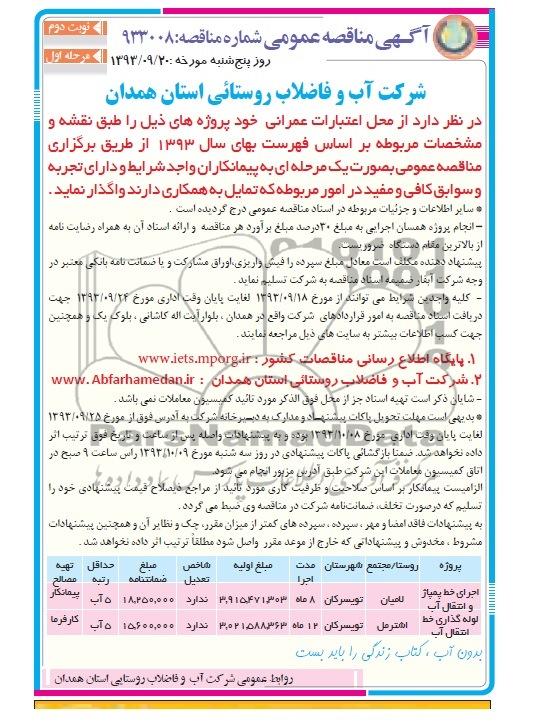 آگهی مناقصه عمومی شماره مناقصه: ۹۳۳۰۰۸
نوبت دوم
روز پنج‌شنبه مورخه :۱۳۹۳/۰۹/۲۰
مرحله اول
شرکت آب و فاضلاب روستائی استان همدان
در نظر دارد از محل اعتبارات عمرانی خود پروژه های ذیل را طبق نقشه و
مشخصات مربوطه بر اساس فهرست بهای سال ۱۳۹۳ از طریق برگزاری
مناقصه عمومی بصورت یک مرحله ای به پیمانکاران واجد شرایط و دارای تجربه
و سوابق کافی و مفید در امور مربوطه که تمایل به همکاری دارند واگذار نماید .
* سایر اطلاعات و جزئیات مربوطه در اسناد مناقصه عمومی درج گردیده است .
– انجام پروژه همسان اجرایی به مبلغ ۳۰درصد مبلغ برآورد هر مناقصه و ارائه اسناد آن به همراه رضایت نامه
از بالاترین مقام دستگاه ضروریست.
پیشنهاد دهنده مکلف است معادل مبلغ سپرده را فیش واریزی،اوراق مشارکت و یا ضمانت نامه بانکی معتبر در
وجه شرکت آبفار ضمیمه اسناد مناقصه به شرکت تسلیم نماید .
- کلیه واجدین شرایط می توانند از مورخ ۱۳۹۳/۰۹/۱۸ لغایت پایان وقت اداری مورخ ۱۳۹۳/۰۹/۲۴ جهت
دریافت اسناد مناقصه به امور قراردادهای شرکت واقع در همدان ، بلوار آیت اله کاشانی ، بلوک یک و همچنین
جهت کسب اطلاعات بیشتر به سایت های ذیل مراجعه نمایند .
۱. پایگاه اطلاع رسانی مناقصات کشور : www.iets.mporg.ir
۲. شرکت آب و فاضلاب روستائی استان همدان : www.Abfarhamedan.ir
- شایان ذکر است تهیه اسناد جز از محل فوق الذکر مورد تائید کمیسیون معاملات نمی باشد .
* بدیهی است مهلت تحویل پاکات پیشنهاد و مدارک به دبیرخانه شرکت به آدرس فوق از مورخ ۱۳۹۳/۰۹/۲۵
لغایت پایان وقت اداری مورخ ۱۳۹۳/۱۰/۰۸ بوده و به پیشنهادات واصله پس از ساعت و تاریخ فوق ترتیب اثر
داده نخواهد شد. ضمنا بازگشائی پاکات پیشنهادی در روز سه شنبه مورخ ۱۳۹۳/۱۰/۰۹ راس ساعت ۹ صبح در
اتاق کمیسیون معاملات این شرکت طبق آدرس مزبور انجام می شود.
الزامیست پیمانکار بر اساس صلاحیت و ظرفیت کاری مورد تائید از مراجع ذیصلاح قیمت پیشنهادی خود را
تسلیم که درصورت تخلف، ضمانت‌نامه شرکت در مناقصه وی ضبط می گردد .
به پیشنهادات فاقد امضا و مهر ، سپرده ، سپرده های کمتر از میزان مقرر، چک و نظایر آن و همچنین پیشنهادات
مشروط ، مخدوش و پیشنهاداتی که خارج از موعد مقرر واصل شود مطلقاً ترتیب اثر داده نخواهد شد .
پروژه روستا/مجتمع شهرستان مدت اجرا مبلغ اولیه شاخص تعدیل مبلغ ضمانتنامه حداقل رتبه تهیه مصالح
اجرای خط پمپاژ و انتقال آب لامیان تویسرکان ۸ ماه ۳,۹۱۵,۴۷۱,۳۰۳ ندارد ۱۸,۲۵۰,۰۰۰ ۵ آب پیمانکار
لوله گذاری خط انتقال آب اشترمل تویسرکان ۱۲ ماه ۳,۰۲۱,۵۸۸,۳۶۳ ندارد ۱۵,۶۰۰,۰۰۰ ۵ آب کارفرما
بدون آب ، کتاب زندگی را باید بست
روابط عمومی شرکت آب و فاضلاب روستایی استان همدان